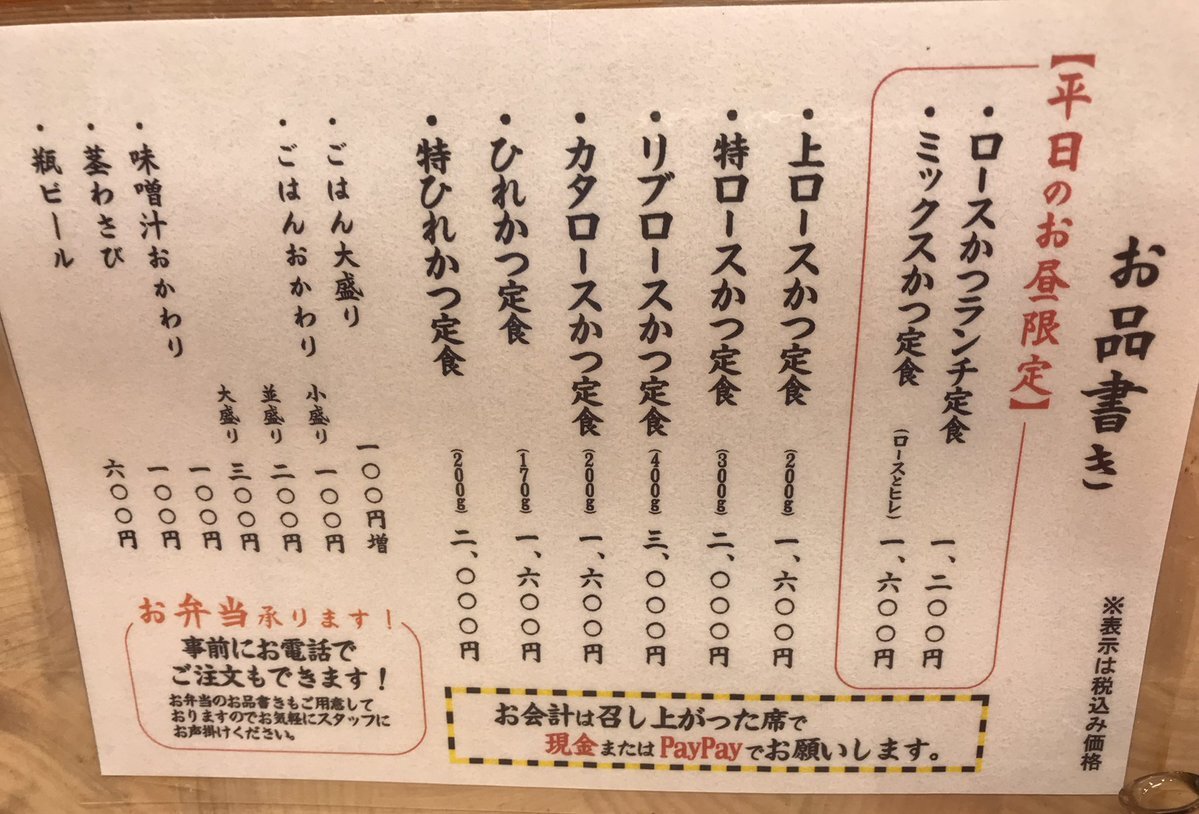 お品書き
※表示は税込み価格
【平日のお昼限定】
・ロースかつランチ定食 一、二〇〇円
・ミックスかつ定食 (ロースとヒレ) 一、六〇〇円
・上ロースかつ定食 (200g) 一、六〇〇円
・特ロースかつ定食 (300g) 二、〇〇〇円
・リブロースかつ定食 (400g) 三、〇〇〇円
・カタロースかつ定食 (200g) 一、六〇〇円
・ひれかつ定食 (170g) 一、六〇〇円
・特ひれかつ定食 (200g) 二、〇〇〇円
・ごはん大盛り 一〇〇円増
・ごはんおかわり 小盛り 一〇〇円
並盛り 二〇〇円
大盛り 三〇〇円
・味噌汁おかわり 一〇〇円
・茎わさび 一〇〇円
・瓶ビール 六〇〇円
お会計は召し上がった席で
現金またはPayPayでお願いします。
お弁当承ります！
事前にお電話で
ご注文もできます！
お弁当のお品書きもご用意して
おりますのでお気軽にスタッフに
お声掛けください。